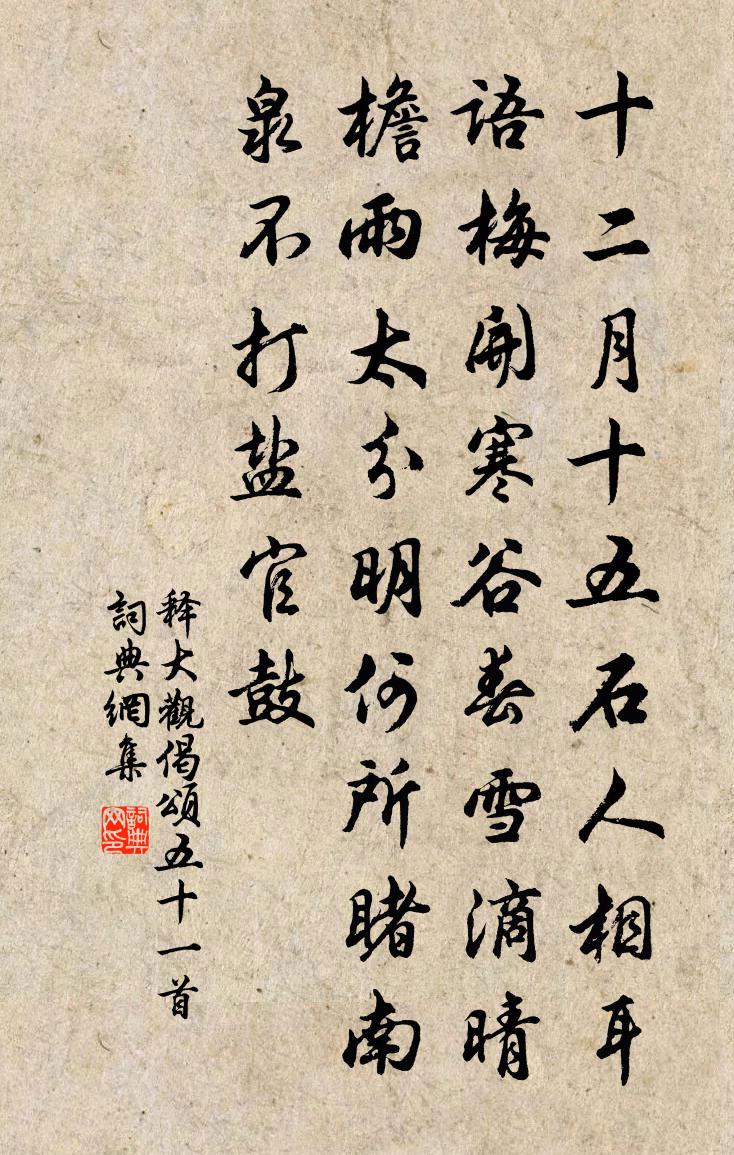 十二月十五石人相耳
语梅開寒谷春雪滴晴
檐雨太分明何所睹南
泉不打盐官鼓
释大觀偈頌五十一首
詞典網集
詞典网印